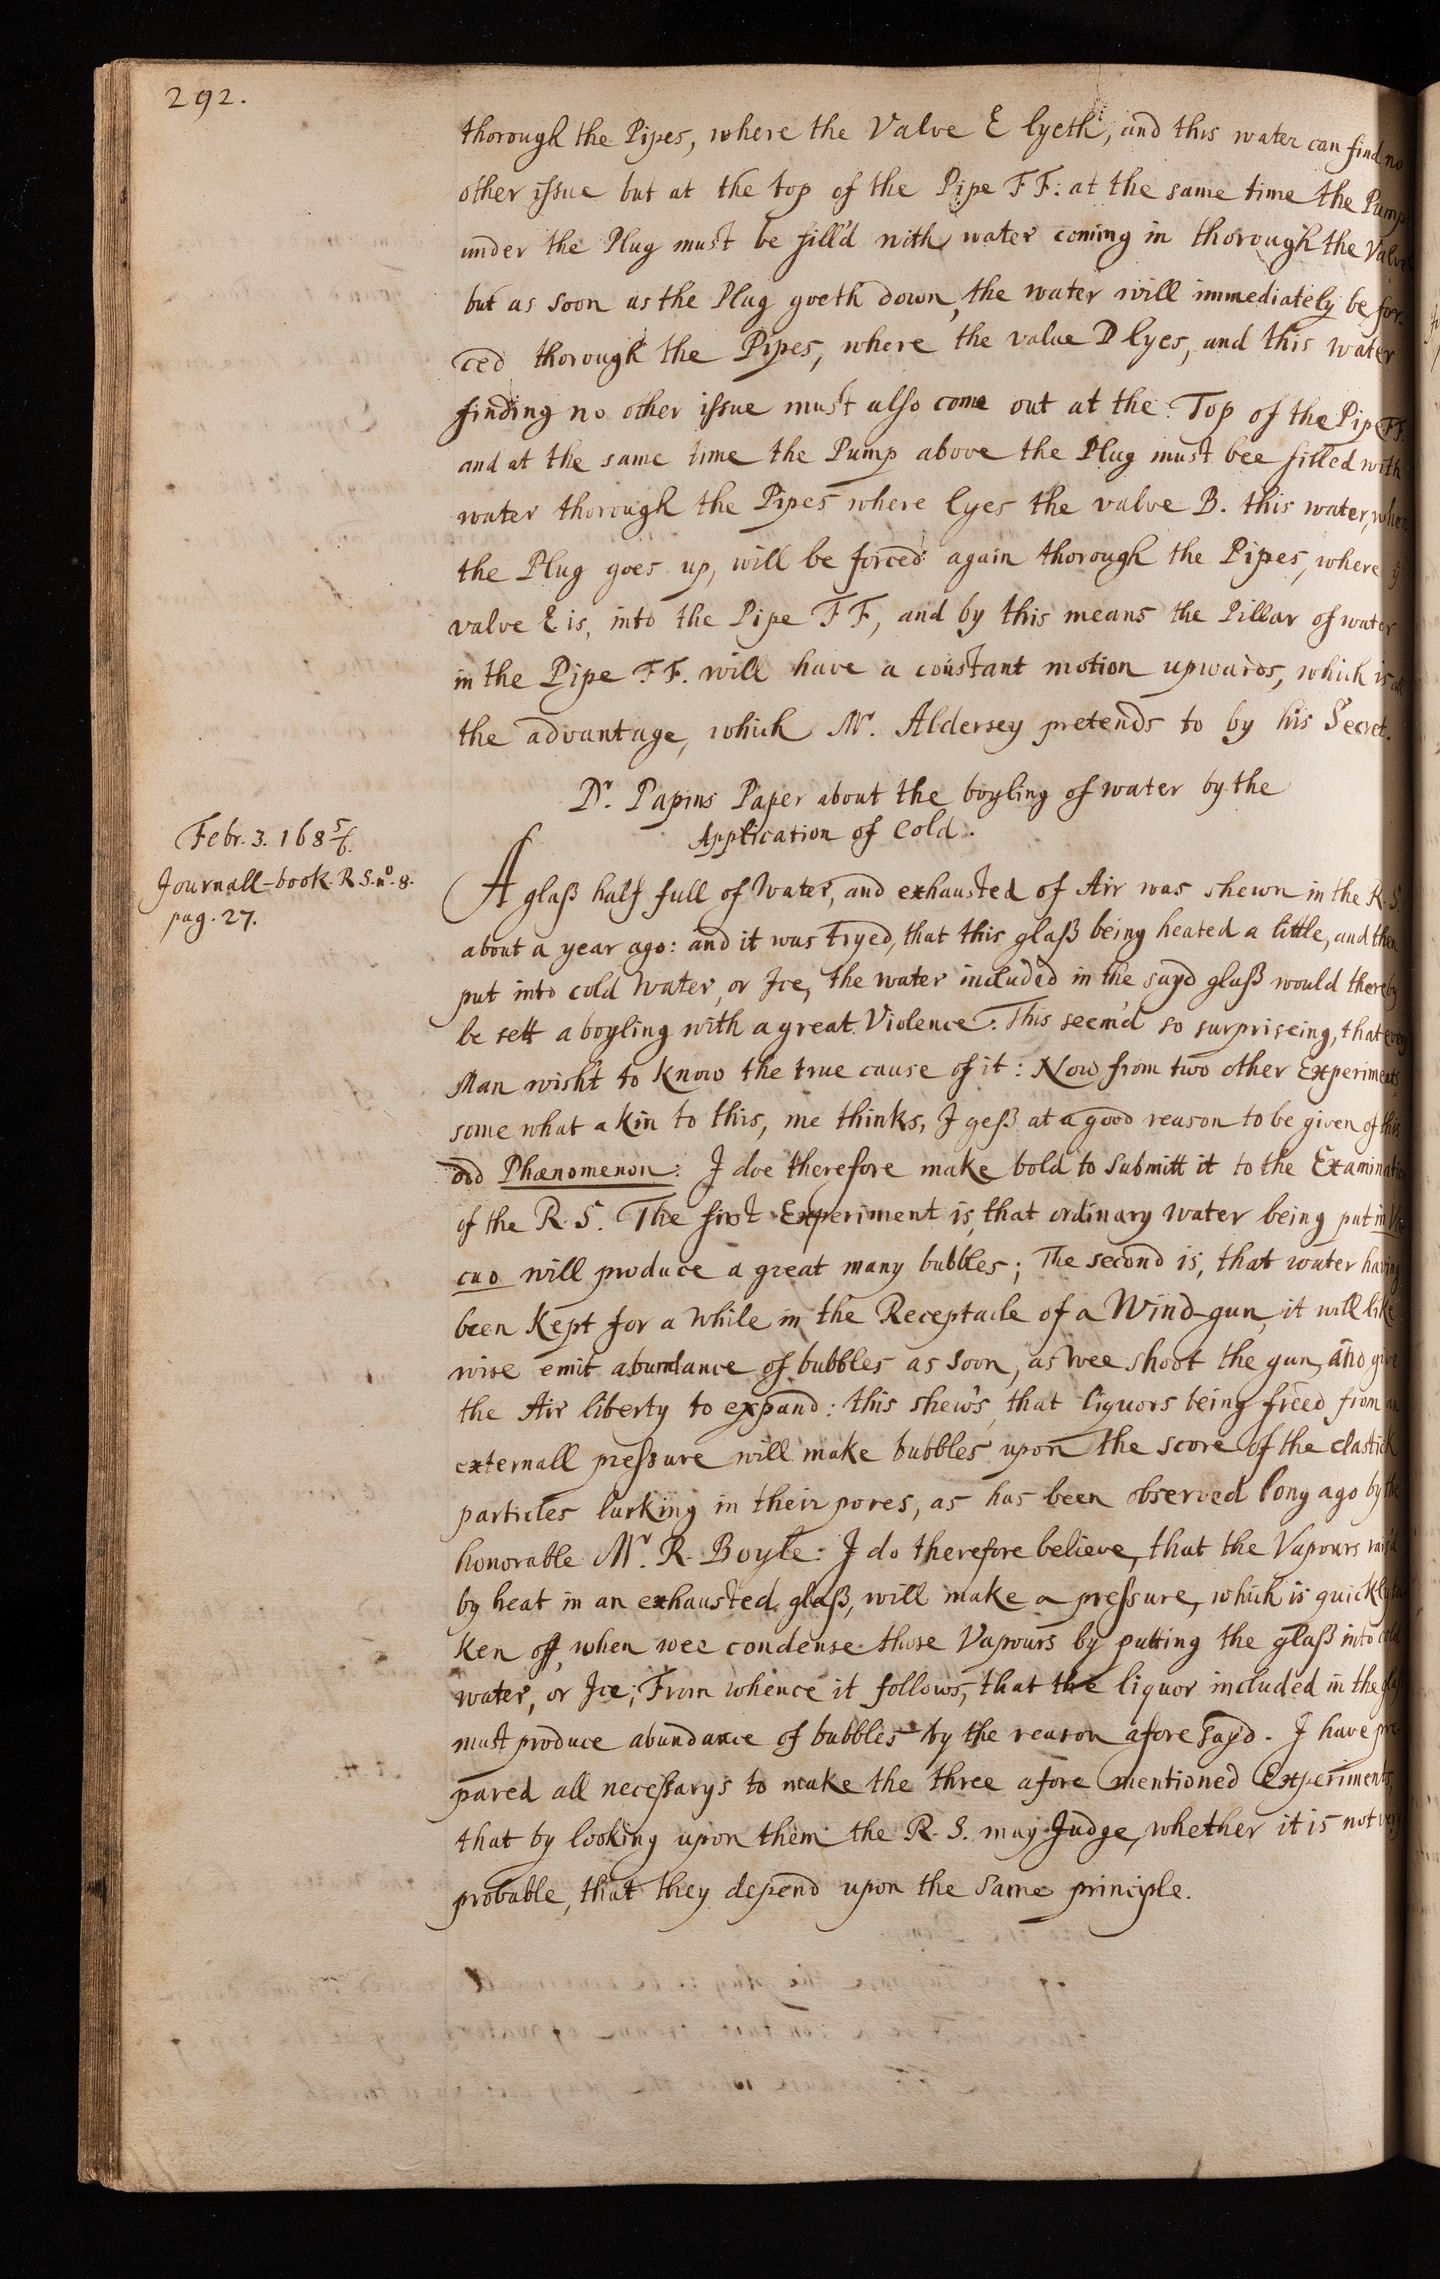 292.
thorough the Pipes, where the Valve E lyeth, and this water can find no
other issue but at the top of the Pipe FF: at the same time the Pump
under the Plug must be fill'd with water coming in thorough the Valve
but as soon as the Plug goeth down, the water will immediately be for-
ced thorough the Pipes, where the value D lyes, and this water
finding no other issue must also come out at the Top of the Pipe FF.
and at the same time the Pump above the Plug must bee filled with
water thorough the Pipes where lyes the valve B. this water, when
the Plug goes up, will be forced again thorough the Pipes, where
valve E is, into the Pipe FF, and by this means the Pillar of water
in the Pipe FF. will have a constant motion upwards, which is all
the advantage, which Mr. Aldersey pretends to by his Secret.
Dr. Papins Paper about the boyling of water by the
Application of Cold.
Febr. 3. 168 5/6.
Journall-book. R S. no. 8.
pag. 27.
A glaß half full of Water, and exhausted of Air was shewn in the R. S.
about a year ago: and it was tryed, that this glaß being heated a little, and then
put into cold Water, or Ice, the water included in the sayd glaß would thereby
be sett a boyling with a great Violence: This seem'd so surpriseing, that every
Man wisht to know the true cause of it: Now from two other Experiments
some what a kin to this, me thinks, I geß at a good reason to be given of this
odd Phænomenon: I doe therefore make bold to submitt it to the Examination
of the R. S. The first Experiment is, that ordinary water being put in Va-
cuo will produce a great many bubbles; The second is, that water having
been kept for a while in the Receptacle of a Wind-gun, it will like
wise emit abundance of bubbles as soon, as wee shoot the gun, and give
the Air liberty to expand: this shew's, that liquors being freed from an
externall preßure will make bubbles upon the score of the elastick
particles lurking in their pores, as has been observed long ago by the
honorable Mr. R. Boyle: I do therefore believe, that the Vapours rais'd
by heat in an exhausted glaß, will make a preßure, which is quickly ta
ken off, when wee condense those Vapours by putting the glaß into cold
water, or Ice; From whence it follows, that the liquor included in the glaß
must produce abundance of bubbles by the reason afore sayd. I have pre-
pared all neceßarys to make the three afore mentioned Experiments,
that by looking upon them the R. S. may Judge, whether it is not very
probable, that they depend upon the same principle.